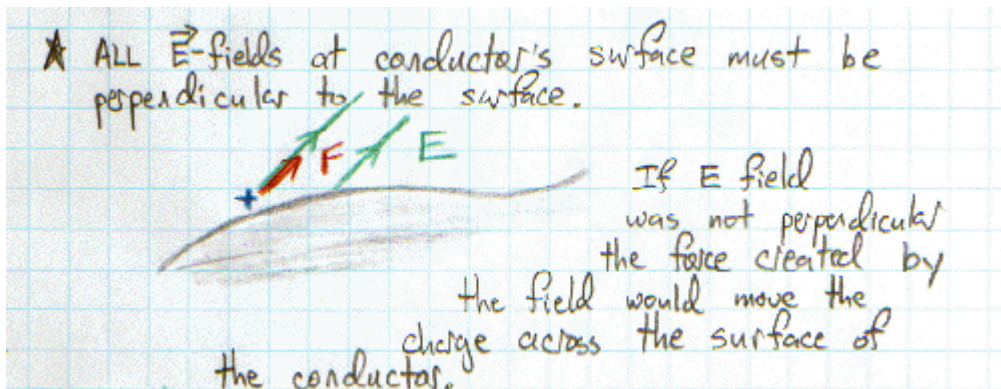 ★ ALL E⃗-fields at conductor's surface must be
perpendicular to the surface.
F E
+
If E field
was not perpendicular
the force created by
the field would move the
charge across the surface of
the conductor.